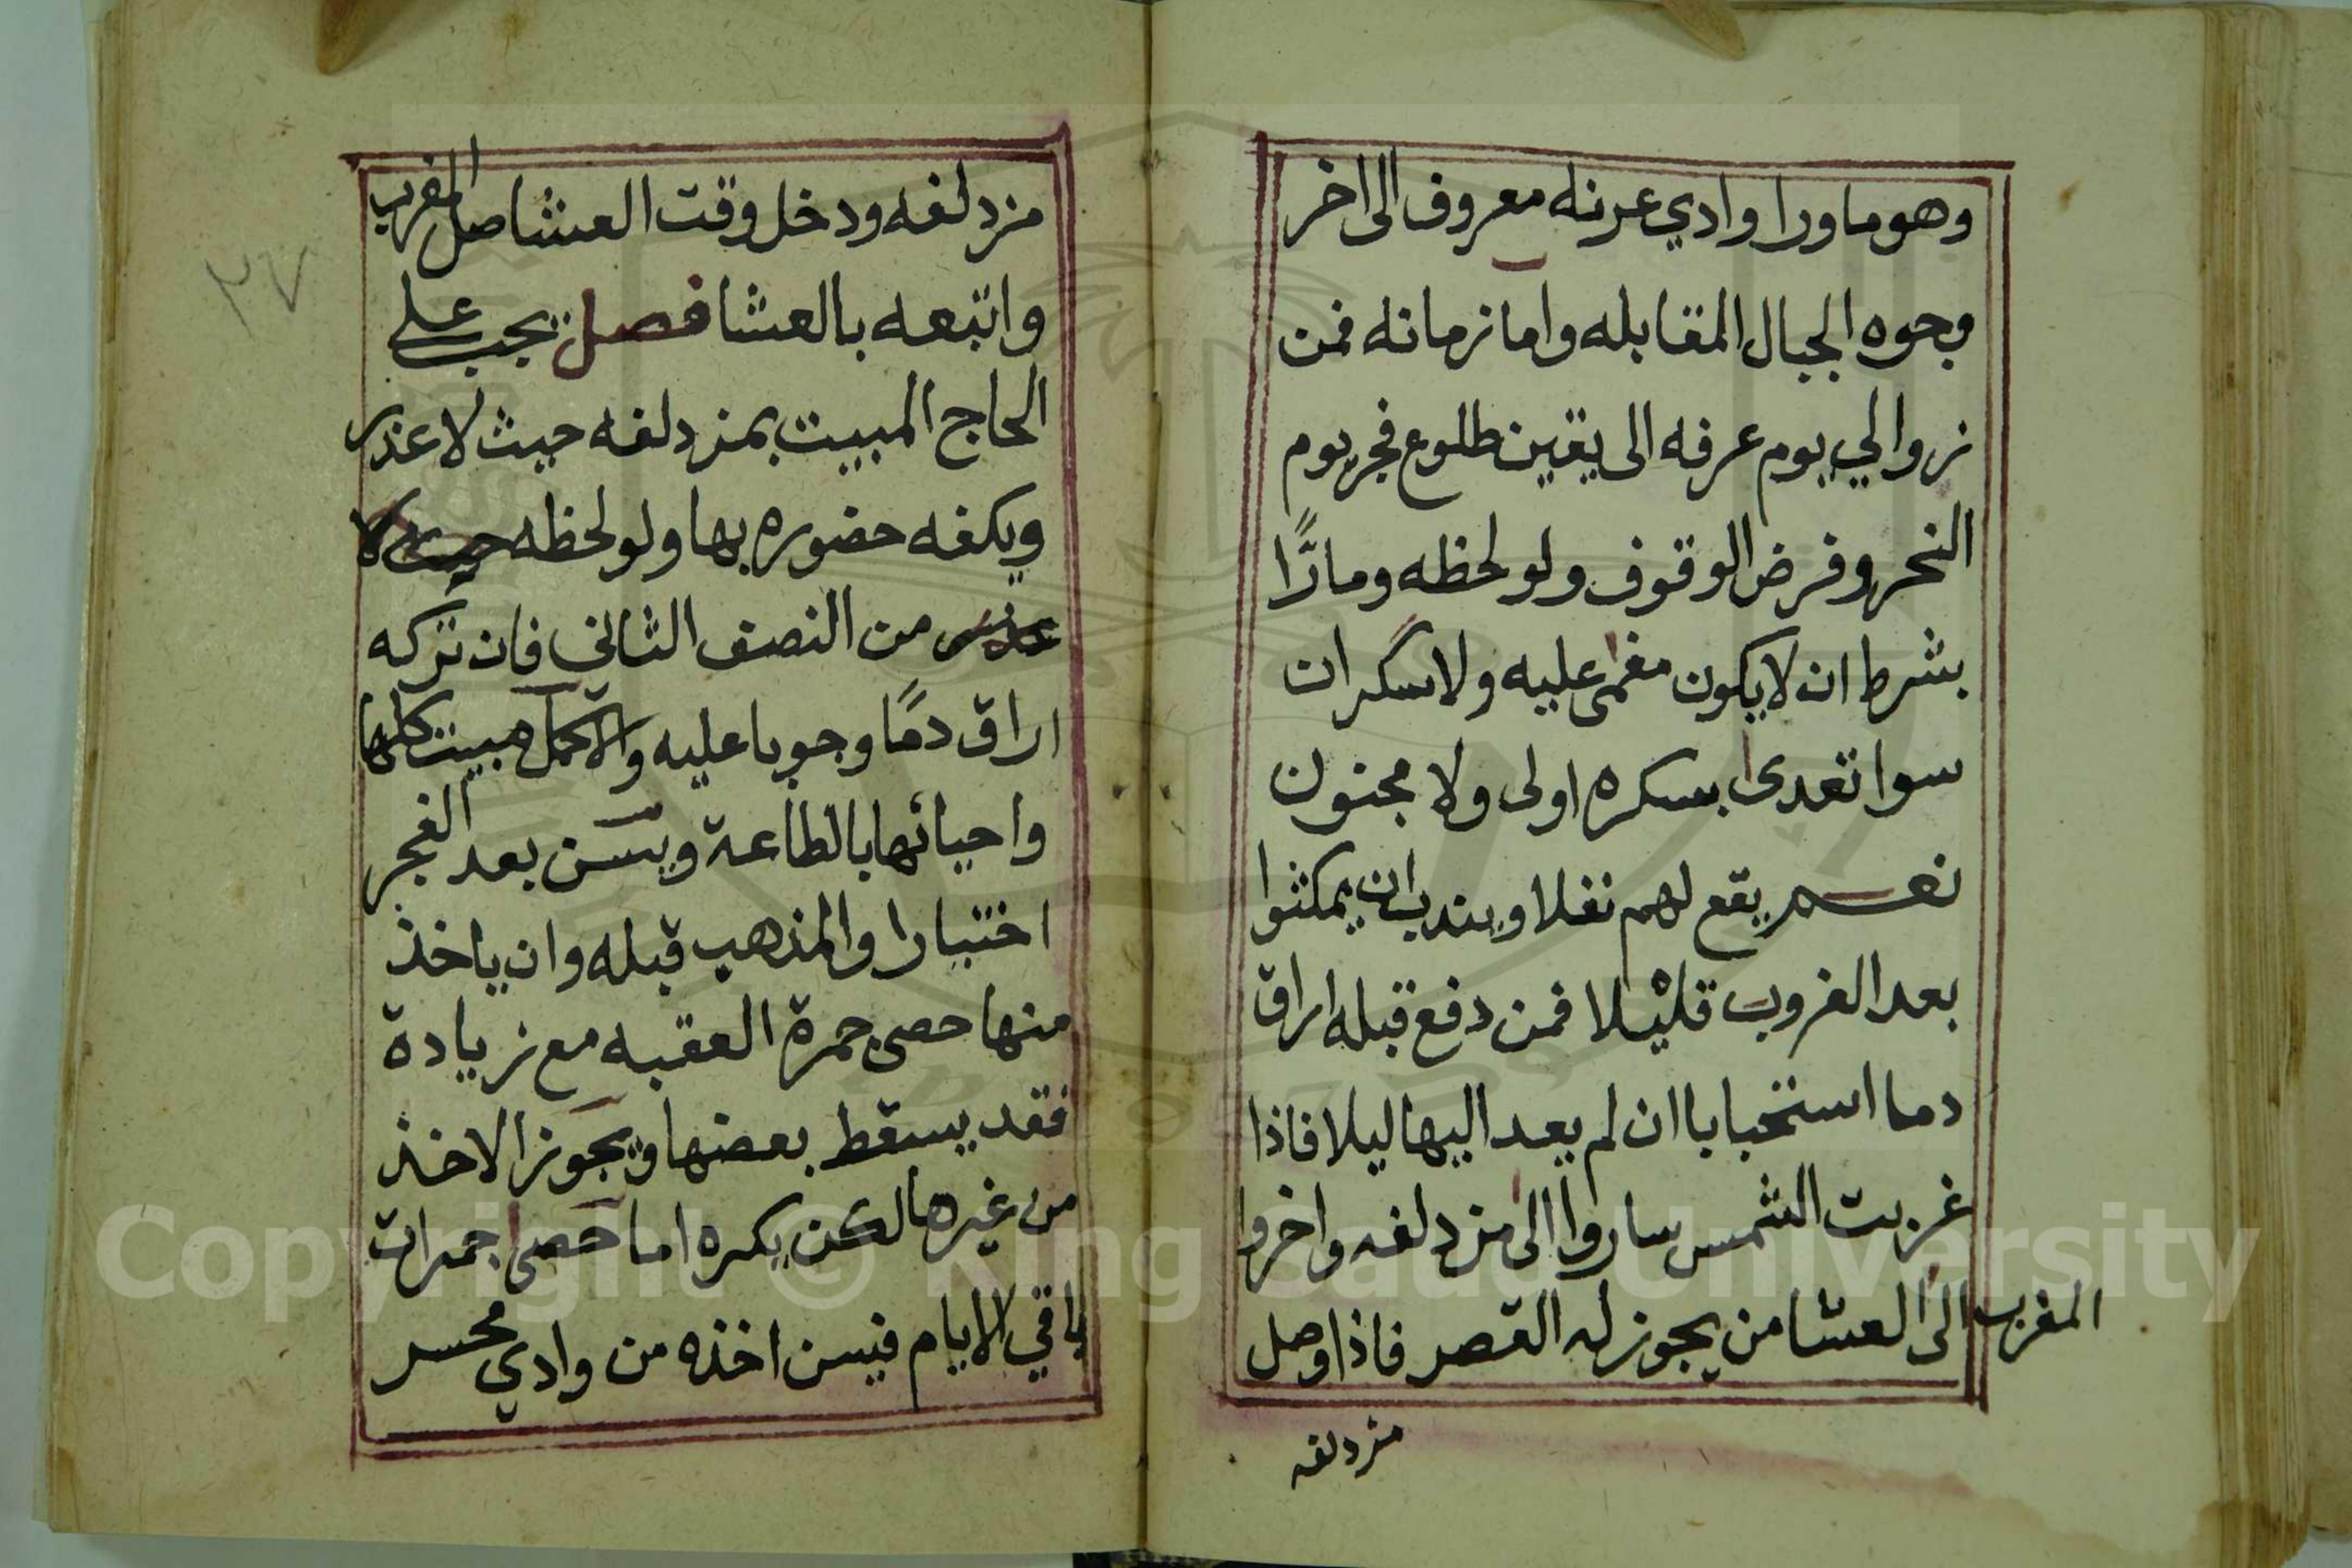 وهو ما ورا وادي عرنه معروف الى اخر
وجوه الجبال المقابله واما زمانه فمن
زوالي يوم عرفه الى يقين طلوع فجر يوم
النحر وفرض الوقوف ولو لحظه ومارًّا
بشرط ان لا يكون مغمى عليه ولا سكران
سوا تعدى بسكره اولى ولا مجنون
نعم يقع لهم نفلا ويندب ان يمكثوا
بعد الغروب قليلا فمن دفع قبله اراق
دما استحبابا ان لم يعد اليها ليلا فاذا
غربت الشمس ساروا الى مزدلفه واخروا
المغرب الى العشا من يجوز له القصر فاذا وصل
مزدلفه
٢٧
مزدلفه ودخل وقت العشا صل المغرب
واتبعه بالعشا فصل يجب على
الحاج المبيت بمزدلفه حيث لا عذر
ويكفه حضوره بها ولو لحظه حيث لا
عذر من النصف الثاني فان تركه
اراق دمًا وجوبا عليه والاكمل مبيت كلها
واحيائها بالطاعة ويسن بعد الفجر
اختبارا والمذهب قبله وان ياخذ
منها حصى جمرة العقبه مع زيادة
فقد يسقط بعضها ويجوز الاخذ
من غيرها لكن يكره اما حصى جمرات
باقي الايام فيسن اخذه من وادي محسر
Copyright © King Saud University